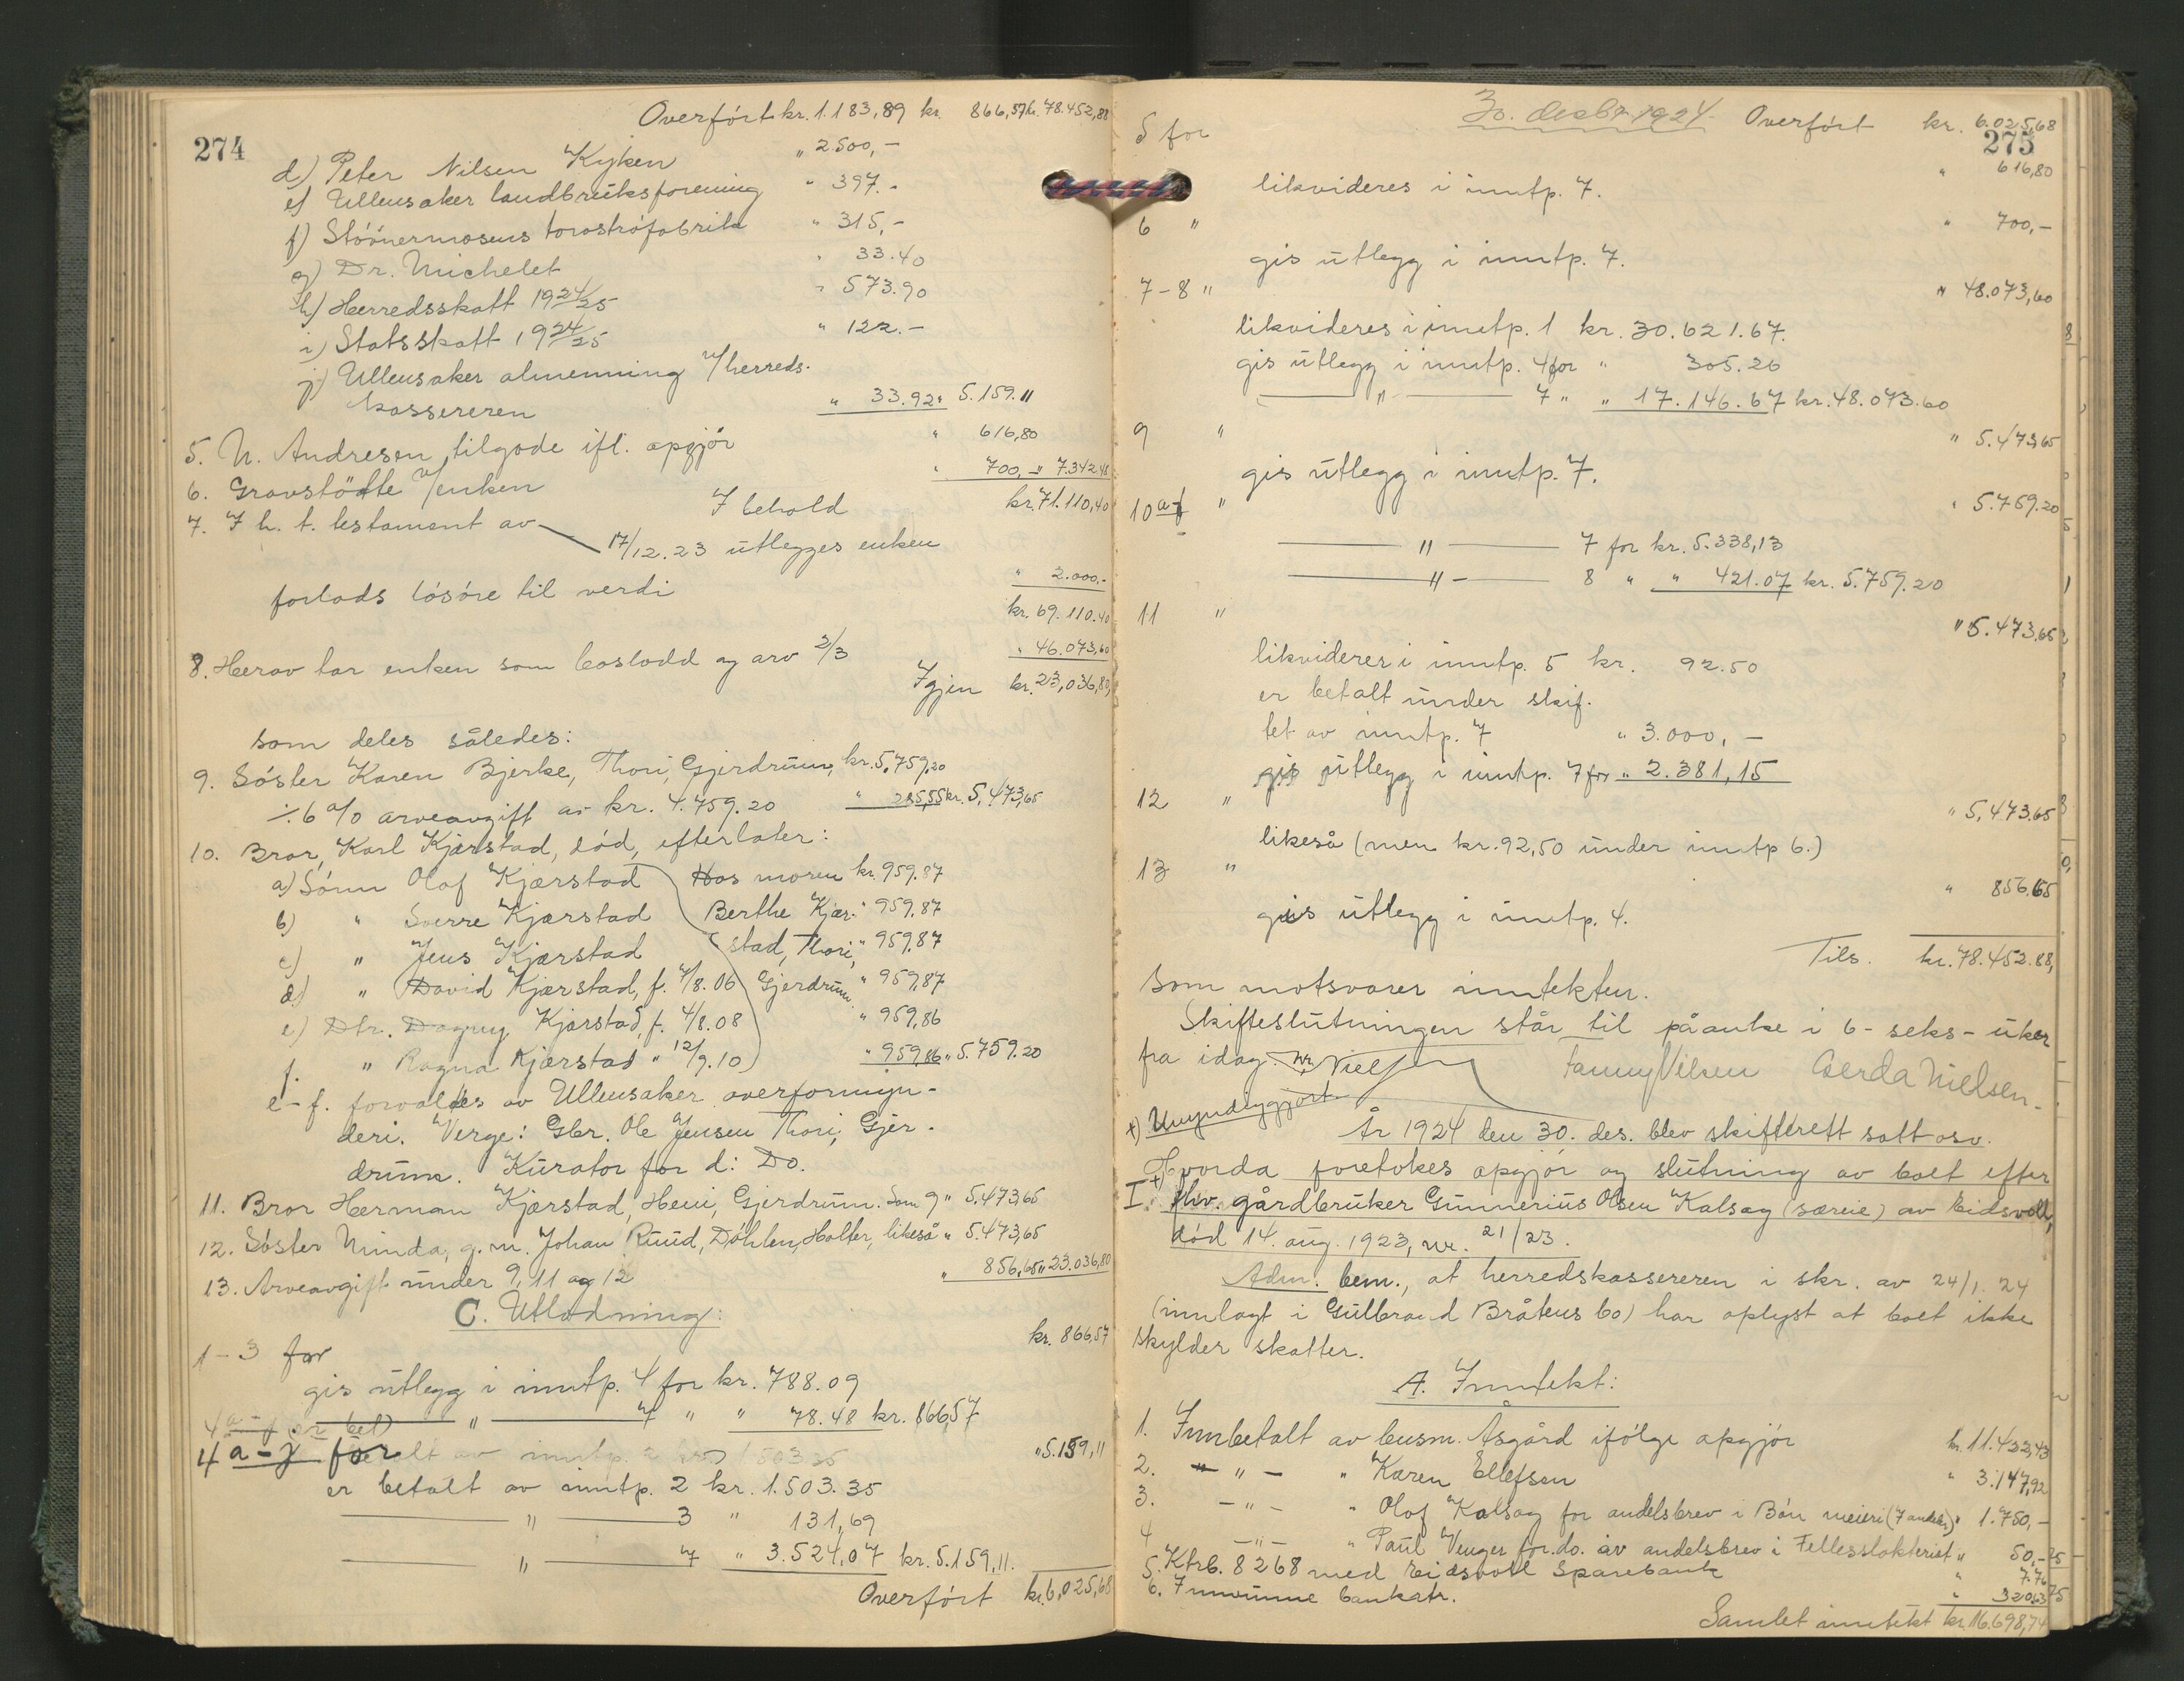 274
Overført kr. 1.183,89 kr. 866,57 kr. 78.452,88
d) Peter Nilsen Kyken " 2500,-
e) Ullensaker landbruksforening " 397.-
f) Stöönermosens torvströfabrikk " 315,-
g) Dr. Michelet " 33.40
h) Herredsskatt 1924/25 " 573.90
i) Statsskatt 1924/25 " 122.-
j) Ullensaker almenning v/herreds-
kassereren " 33.92 " 5.159.11
5. N. Andresen tilgode ifl. opgjör " 616,80
6. Gravstötte v/enken " 700,- " 7.342.48
I behold kr. 71.110,40
7. I h. t. testament av
17/12.23 utlegges enken
forlods lösöre til verdi " 2.000.-
kr. 69.110.40
8. Herav tar enken som boslodd og arv 2/3 " 46.073,60
Igjen kr. 23,036,80
som deles således:
9. Söster Karen Bjerke, Thori, Gjerdrum, kr. 5.759,20
÷ 6 % arveavgift av kr. 4.759.20 " 285,55 kr. 5,473,65
10. Bror, Karl Kjærstad, död, efterlater:
a) Sönn Olaf Kjærstad Hos moren kr. 959.87
b) " Sverre Kjærstad Berthe Kjær- " 959,87
c) " Jens Kjærstad stad, Thori, " 959.87
d) " David Kjærstad, f. 4/8.06 Gjerdrum. " 959,87
e) Dtr. Dagny Kjærstad, f. 4/8.08 " 959,86
f. " Ragna Kjærstad " 12/9.10 " 959,86 " 5.759.20
e-f. forvaltes av Ullensaker overformyn-
deri. Verge: Gbr. Ole Jensen Thori, Gjer-
drum. Kurator for d: Do.
11. Bror Herman Kjærstad, Heni, Gjerdrum. Som 9 " 5.473,65
12. Söster Minda, g. m. Johan Ruud, Döhlen, Holter, likeså " 5.473,65
13. Arveavgift under 9, 11 og 12 " 856,65 " 23.036,80
C. Utlodning:
1-3 for kr. 866,57
gis utlegg i inntp. 4 for kr. 788.09
" 7 " " 78.48 kr. 866,57
4 a-j for " 5.159,11
er betalt av inntp. 2 kr. 1.503.35
" 3 " 131,69
" 7 " 3.524,07 kr. 5.159,11.
Overført kr. 6,025,68
275
30. desbr. 1924. Overført kr. 6.025,68
5 for " 616,80
likvideres i inntp. 7.
6 " " 700,-
gis utlegg i inntp. 7.
7-8 " " 48.073,60
likvideres i inntp. 1 kr. 30.621.67.
gis utlegg i inntp. 4 for " 305.26
" 7 " " 17.146.67 kr. 48.073.60
9 " " 5.473,65
gis utlegg i inntp. 7.
10 a-f " " 5.759.20
" 7 for kr. 5.338,13
" 8 " " 421.07 kr. 5.759.20
11 " " 5.473.65
likvideres i inntp. 5 kr. 92.50
er betalt under skif-
tet av inntp. 7 " 3.000,-
gis utlegg i inntp. 7 for " 2.381,15
12 " " 5,473.65
likeså (men kr. 92,50 under inntp 6.)
13 " " 856.65
gis utlegg i inntp. 4.
Tils. kr. 78.452.88,
som motsvarer inntekten.
Skifteslutningen står til påanke i 6 - seks - uker
fra idag. Fanny Nilsen Gerda Nielsen.
+) Umyndiggjort
År 1924 den 30. des. blev skifterett satt osv.
Hvorda foretokes opgjör og slutning av boet efter
I. +) fhv. gårdbruker Gunnerius Olsen Kalsag (særeie) av Eidsvoll,
död 14. aug. 1923, nr. 21/23.
Adm. bem., at herredskassereren i skr. av 24/1. 24
(innlagt i Gulbrand Bråtens bo) har oplyst at boet ikke
skylder skatter.
A. Inntekt:
1. Innbetalt av lensm. Åsgård ifölge opgjör kr. 11.422,43
2. - " - " Karen Ellefsen " 3.147,92
3. - " - " Olaf Kalsag for andelsbrev i Bön meieri (7 andeler) " 1.750,-
4 - " - " Paul Venger for do. av andelsbrev i Fellesslakteriet " 50,-
5. Ktrb. 8268 med Eidsvoll Sparebank " 7.76
6. Innvunne bankrtr. " 320,63
Samlet inntekt kr. 16.698,74